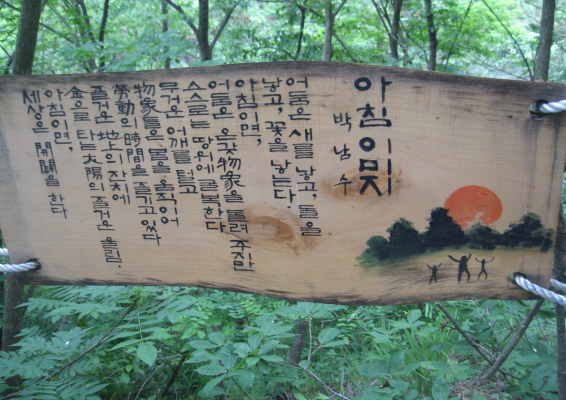 아침 이미지
박남수
어둠은 새를 낳고, 돌을
낳고, 꽃을 낳는다.
아침이면,
어둠은 온갖 物象을 돌려 주지만
스스로는 땅위에 굴복한다.
무거운 어깨를 털고
物象들은 몸을 움직이어
勞動의 時間을 즐기고 있다
즐거운 地上의 잔치에
金으로 타는 太陽의 즐거운 울림.
아침이면,
세상은 開闢을 한다